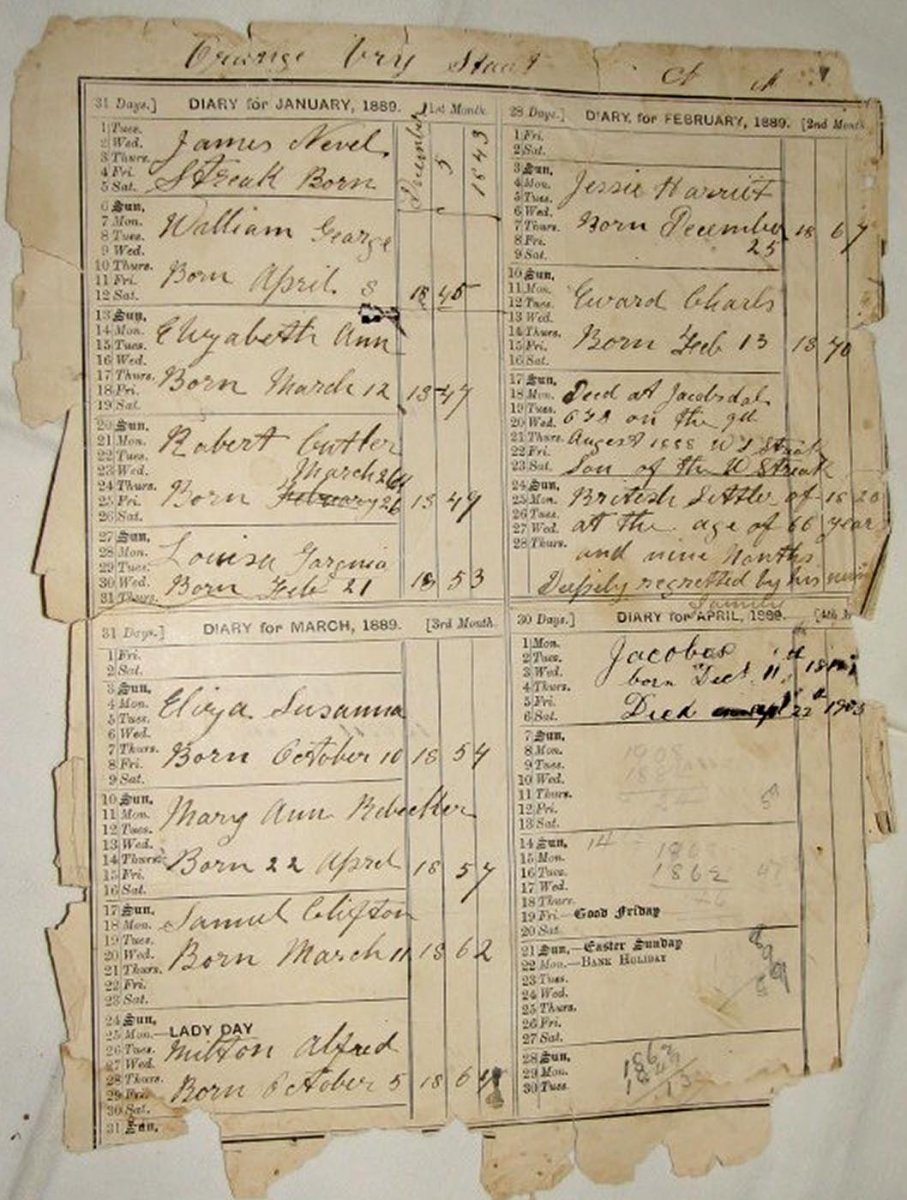 Orange Vry Staat
31 Days.] DIARY for JANUARY, 1889. [1st Month.
1 Tues.
2 Wed.
3 Thurs.
4 Fri.
5 Sat.
James Nevel
Streak Born
December 5 1843
6 Sun.
7 Mon.
8 Tues.
9 Wed.
10 Thurs.
11 Fri.
12 Sat.
William George
Born April 8 1845
13 Sun.
14 Mon.
15 Tues.
16 Wed.
17 Thurs.
18 Fri.
19 Sat.
Elizabeth Ann
Born March 12 1847
20 Sun.
21 Mon.
22 Tues.
23 Wed.
24 Thurs.
25 Fri.
26 Sat.
Robert Cutler
March 26
Born February 26 1849
27 Sun.
28 Mon.
29 Tues.
30 Wed.
31 Thurs.
Louisa
Born Feb 21 1853
28 Days.] DIARY for FEBRUARY, 1889. [2nd Month.
1 Fri.
2 Sat.
3 Sun.
4 Mon.
5 Tues.
6 Wed.
7 Thurs.
8 Fri.
9 Sat.
Jessie Harriet
Born December 1867
25
10 Sun.
11 Mon.
12 Tues.
13 Wed.
14 Thurs.
15 Fri.
16 Sat.
Eward Charls
Born Feb 13 1870
17 Sun.
18 Mon.
19 Tues.
20 Wed.
21 Thurs.
22 Fri.
23 Sat.
Deed at Jacobsdal
on the
August 1888 Streak
Son of the Streak
24 Sun.
25 Mon.
26 Tues.
27 Wed.
28 Thurs.
British Settler of 1820
at the age of 66 year
and nine Months
Deepely regretted by his
family
31 Days.] DIARY for MARCH, 1889. [3rd Month.
1 Fri.
2 Sat.
3 Sun.
4 Mon.
5 Tues.
6 Wed.
7 Thurs.
8 Fri.
9 Sat.
Eliza Susanna
Born October 10 1854
10 Sun.
11 Mon.
12 Tues.
13 Wed.
14 Thurs.
15 Fri.
16 Sat.
Mary Ann Rebecker
Born 22 April 1857
17 Sun.
18 Mon.
19 Tues.
20 Wed.
21 Thurs.
22 Fri.
23 Sat.
Samuel Clifton
Born March 11 1862
24 Sun.
25 Mon.—LADY DAY
26 Tues.
27 Wed.
28 Thurs.
29 Fri.
30 Sat.
31 Sun.
Milton Alfred
Born October 5 186
30 Days.] DIARY for APRIL, 1889. [4th
1 Mon.
2 Tues.
3 Wed.
4 Thurs.
5 Fri.
6 Sat.
Jacobus
born Dec 11
Died
7 Sun.
8 Mon.
9 Tues.
10 Wed.
11 Thurs.
12 Fri.
13 Sat.
14 Sun.
15 Mon.
16 Tues.
17 Wed.
18 Thurs.
19 Fri.—Good Friday
20 Sat.
14
1862
21 Sun.—Easter Sunday
22 Mon.—BANK HOLIDAY
23 Tues.
24 Wed.
25 Thurs.
26 Fri.
27 Sat.
28 Sun.
29 Mon.
30 Tues.
1862
1849
13